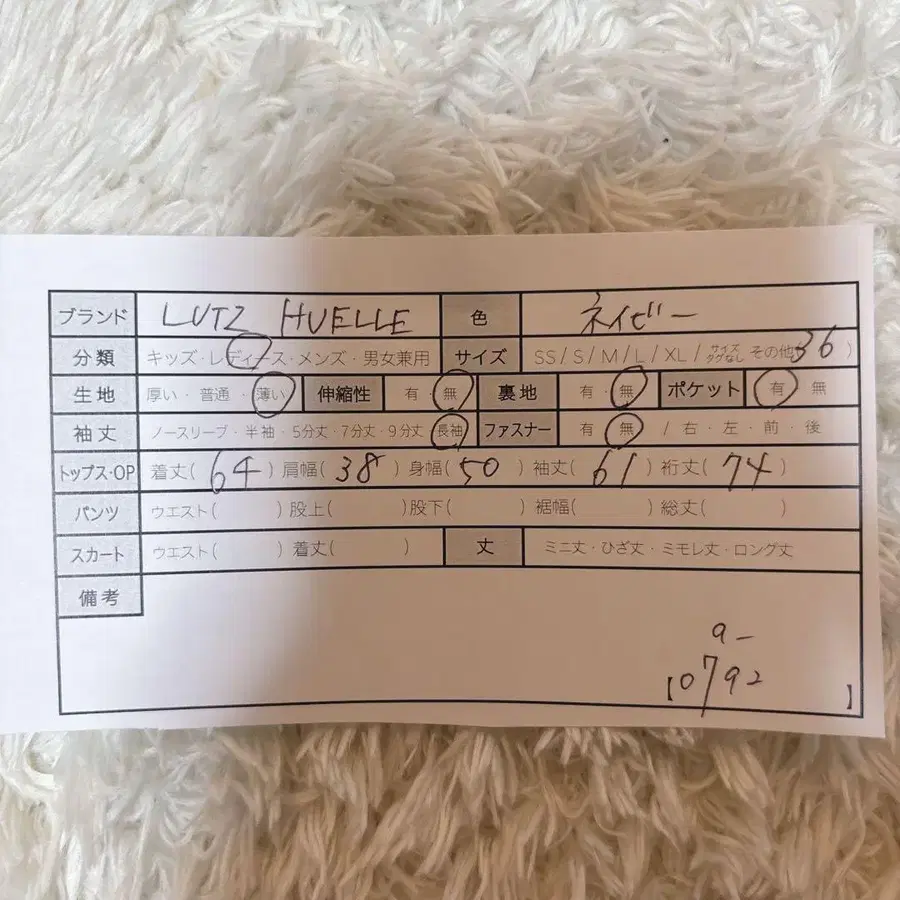 ブランド LUTZ HUELLE 色 ネイビー
分類 キッズ・レディース・メンズ・男女兼用 サイズ SS / S / M / L / XL / サイズタグなし その他 36 )
生地 厚い・普通・薄い 伸縮性 有・無 裏地 有・無 ポケット 有・無
袖丈 ノースリーブ・半袖・5分丈・7分丈・9分丈・長袖 ファスナー 有・無 / 右・左・前・後
トップス・OP 着丈( 64 ) 肩幅( 38 ) 身幅( 50 ) 袖丈( 61 ) 裄丈( 74 )
パンツ ウエスト( ) 股上( ) 股下( ) 裾幅( ) 総丈( )
スカート ウエスト( ) 着丈( ) 丈 ミニ丈・ひざ丈・ミモレ丈・ロング丈
備考
a-
【0792 】